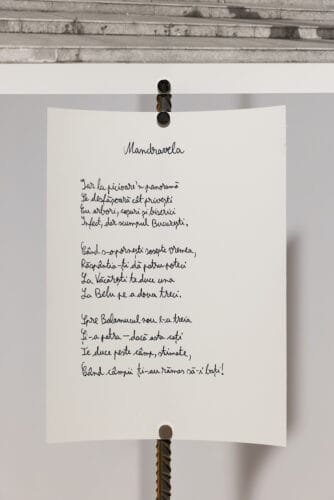 Mandravela
Iar la picioare'n panoramă
Se desfășoară cât privești
Cu arbori, coșuri și biserici
Infect, dar scumpul București.
Când s-opornești sosește vremea,
Răspântia-ți dă patru poteci
La Văcărești te duce una
La Bellu pe a doua treci.
Spre Balamucul nou e-a treia
Și-a patra – dacă asta cați
Te duce peste câmp, stimate,
Când câmpii ți-au rămas să-i bați!